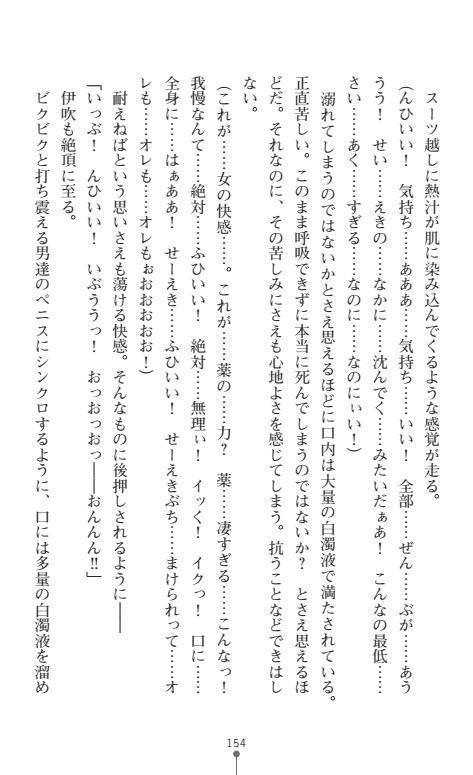 スーツ越しに熱汁が肌に染み込んでくるような感覚が走る。
(んひいい！　気持ち……あああ……気持ち……いい！　全部……ぜん……ぶが……あう
うう！　せい……えきの……なかに……沈んでく……みたいだぁあ！　こんなの最低……
さい……あく……すぎる……なのに……なのにぃい！)
溺れてしまうのではないかとさえ思えるほどに口内は大量の白濁液で満たされている。
正直苦しい。このまま呼吸できずに本当に死んでしまうのではないか？　とさえ思えるほ
どだ。それなのに、その苦しみにさえも心地よさを感じてしまう。抗うことなどできはし
ない。
(これが……女の快感……。これが……薬の……力？　薬……凄すぎる……こんなっ！
我慢なんて……絶対……ふひいい！　絶対……無理ぃ！　イッく！　イクっ！　口に……
全身に……はぁああ！　せーえき……ふひいい！　せーえきぶち……まけられって……オ
レも……オレも……オレもぉおおおおお！)
耐えねばという思いさえも蕩ける快感。そんなものに後押しされるように――
「いっぶ！　んひいい！　いぶううっ！　おっおっおっ――おんんん!!」
伊吹も絶頂に至る。
ビクビクと打ち震える男達のペニスにシンクロするように、口には多量の白濁液を溜め
154